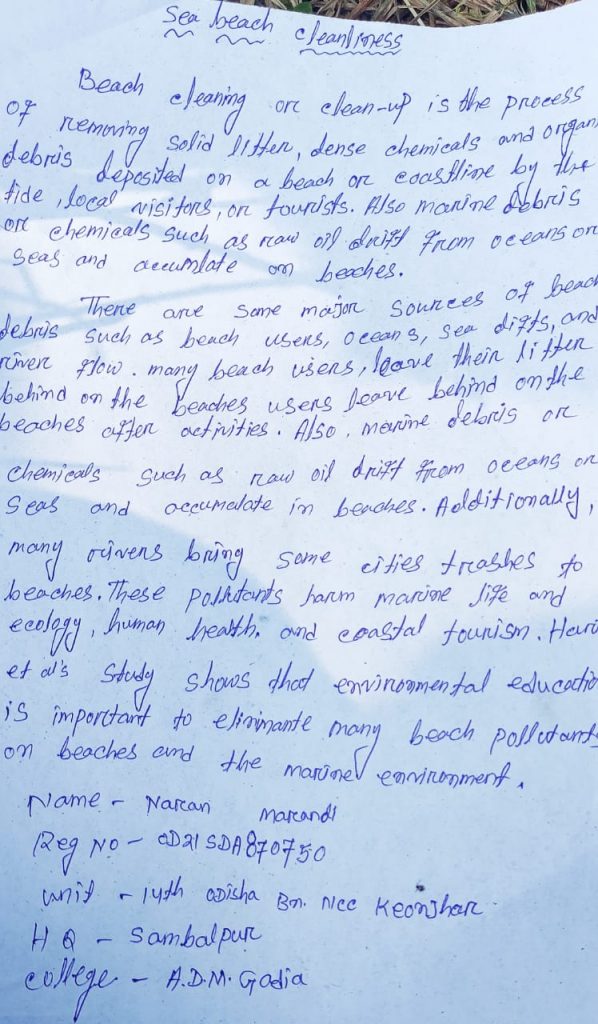 Sea beach cleanliness
Beach cleaning or clean-up is the process
of removing solid litter, dense chemicals and organi
debris deposited on a beach or coastline by the
tide, local visitors, or tourists. Also marine debris
or chemicals such as raw oil drift from oceans or
seas and accumlate on beaches.
There are some major sources of beach
debris such as beach users, oceans, sea difts, and
river flow. many beach users, leave their litter
behind on the beaches users leave behind on the
beaches after activities. Also, marine debris or
chemicals such as raw oil drift from oceans or
seas and accumalate in beaches. Additionally,
many rivers bring some cities trashes to
beaches. These pollutants harm marine life and
ecology, human health. and coastal tourism. Hari
et al's study shows that environmental educatio
is important to elinimante many beach pollutants
on beaches and the marine environment.
Name - Naran Marandi
Reg No - OD21SDA870750
unit - 14th odisha Bn. Ncc Keonjhar
H Q - Sambalpur
college - A.D.M. Godia